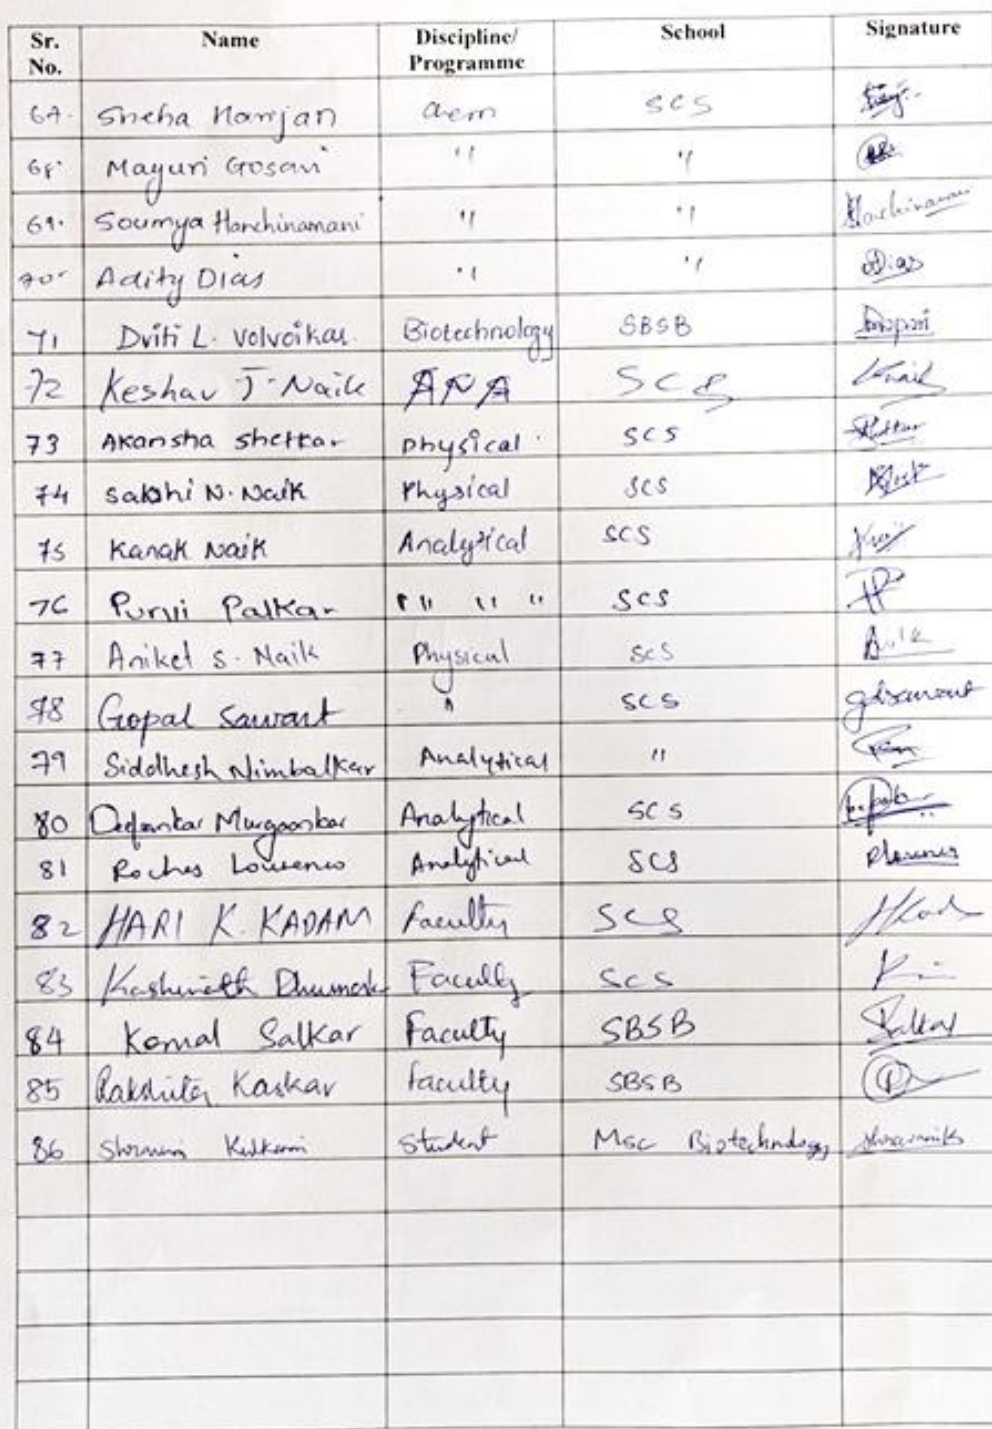 Sr. No. Name Discipline/ Programme School Signature
67. Sneha Harijan chem SCS
68. Mayuri Gosavi " "
69. Soumya Hanchinamani " " Hanchinamani
70. Adity Dias " " Dias
71 Dviti L. Volvoikar. Biotechnology SBSB
72 Keshav J. Naik ANA SCS Knaik
73 Akansha Shetkar Physical SCS
74 Sakshi N. Naik Physical SCS
75 Kanak Naik Analytical SCS
76 Purvi Palkar " " " SCS
77 Aniket S. Naik Physical SCS
78 Gopal Sawant " SCS gdsawant
79 Siddhesh Nimbalkar Analytical "
80 Murgaonkar Analytical SCS
81 Roches Lourenco Analytical SCS
82 HARI K. KADAM Faculty SCS
83 Kashinath Dhumaskar Faculty SCS
84 Komal Salkar Faculty SBSB Salkar
85 Rakshita Kaskar Faculty SBSB
86 Kulkarni Student Msc Biotechnology